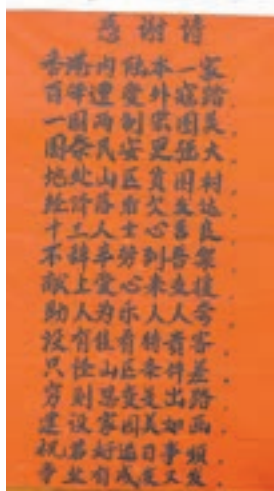 感谢诗
香港内陆本一家，
百年遭受外寇踏。
一国两制宏图美，
国泰民安更强大。
地处山区贫困村，
经济落后欠发达。
十三人士心善良，
不辞辛劳到告袈。
献上爱心来支援，
助人为乐人人夸。
没有桂有特产客，
只怪山区条件差。
穷则思变是出路，
建设家园美如画。
祝君好运日事顺，
事业有成度又发。